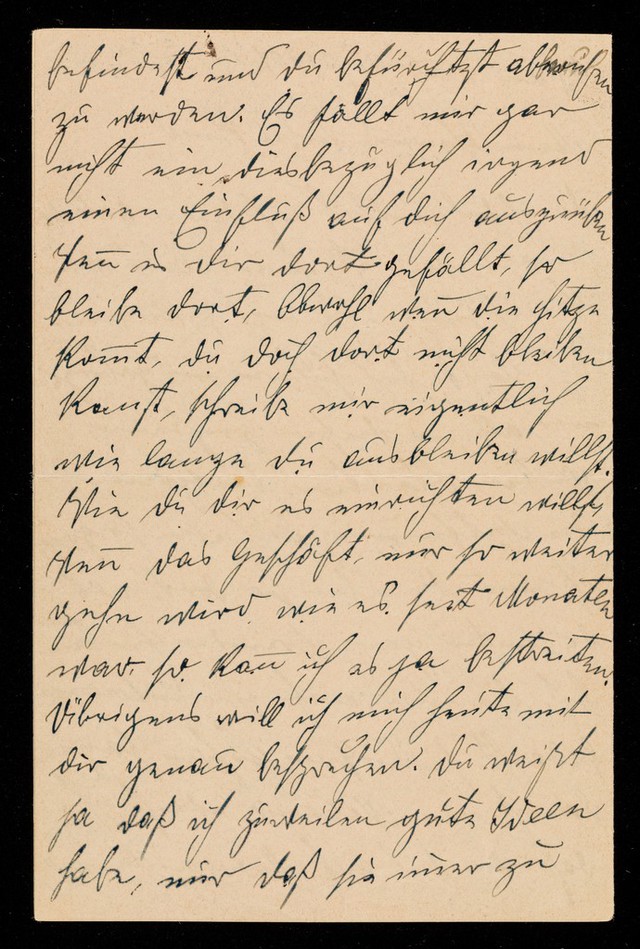 befindest und du befürchtest abberufen
zu werden. Es fällt mir gar
nicht ein diesbezüglich irgend
einen Einfluß auf dich auszuüben
Wen̅ es dir dort gefällt, so
bleibe dort, Obwohl wen̅ die Hitze
kom̅t, du doch dort nicht bleiben
kanst, schreibe mir eigentlich
wie lange du ausbleiben willst.
Wie du dir es einrichten willst,
Wen̅ das Geschäft, nur so weiter
gehn wird wie es seit Monaten
war, so kan̅ ich es ja bestreiten.
Übrigens will ich mich heute mit
dir genau besprechen. Du weißt
ja daß ich zuweilen gute Ideen
habe, nur daß sie im̅er zu